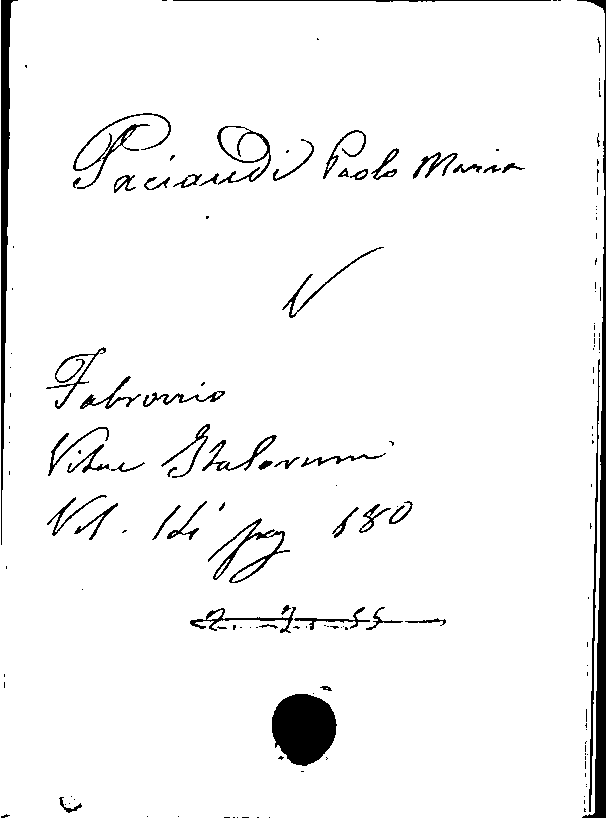 Paciaudi Paolo Maria
V
Fabronio
Vitae Italorum
Vol. 14 pag 180
2. 7. 55